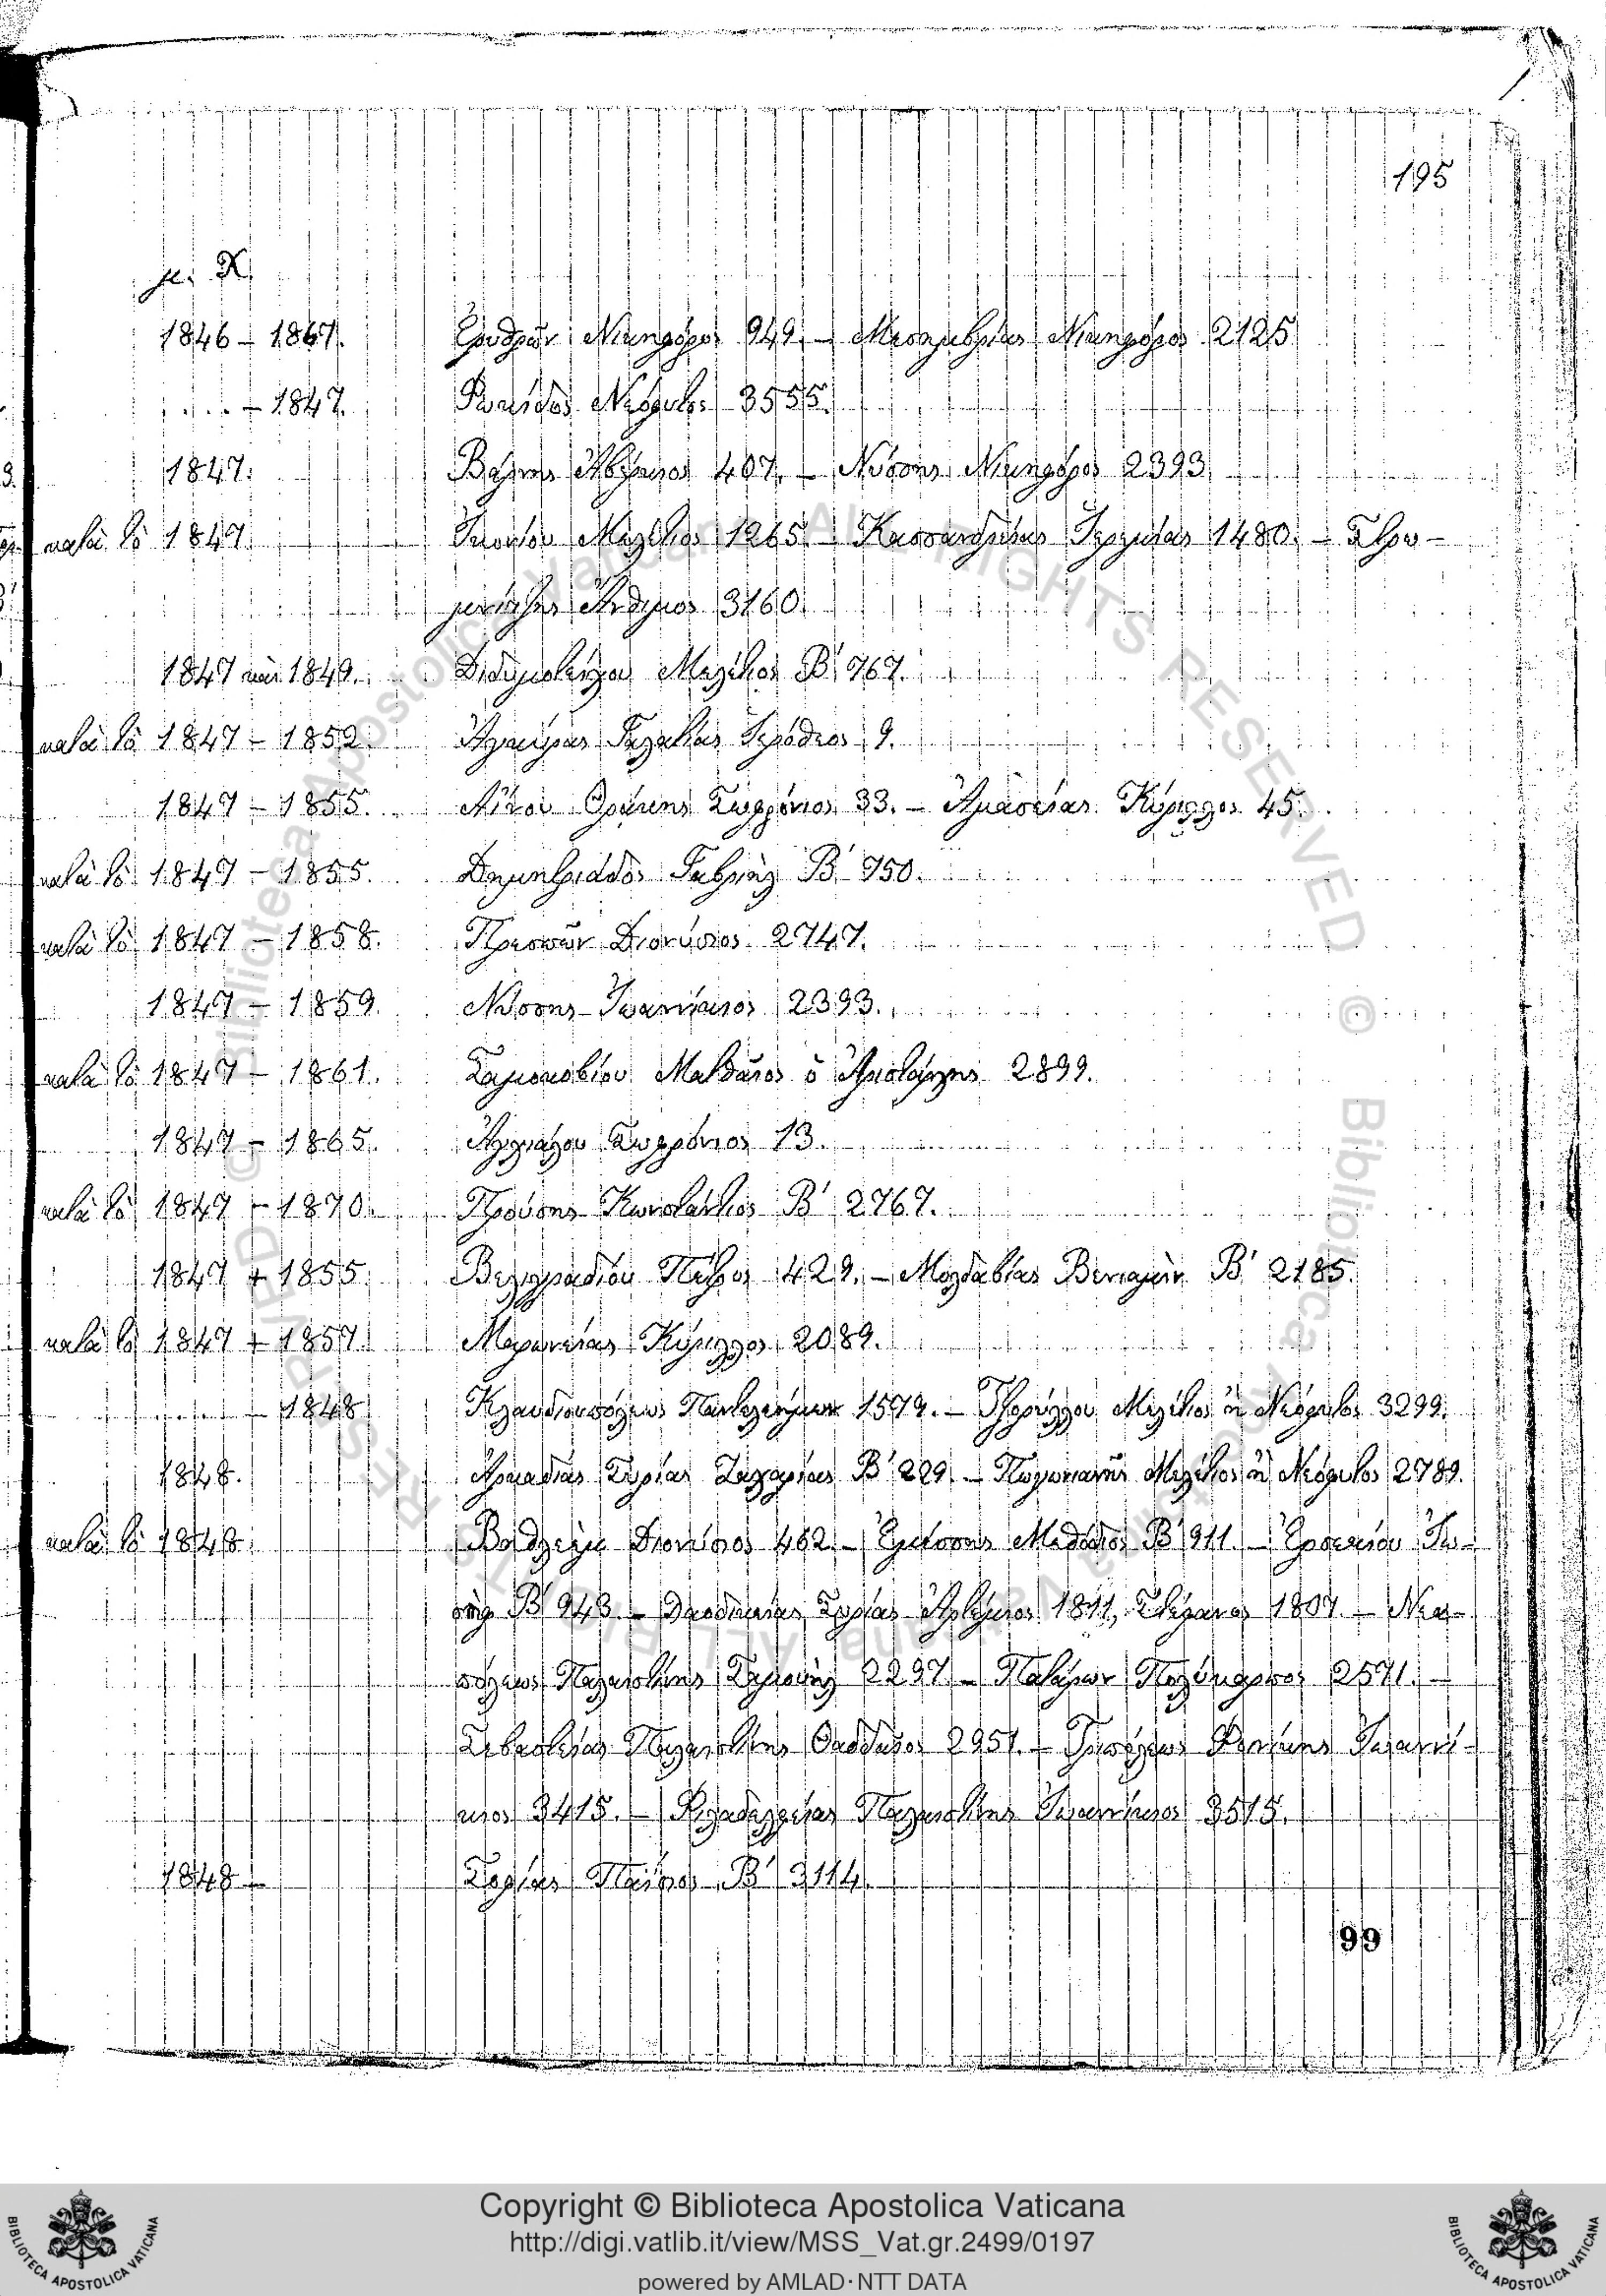 195
μ. Χ.
1846 – 1867. Ἐρυθρῶν Νικηφόρος 949. – Μεσημβρίας Νικηφόρος 2125
. . . . – 1847. Φωκίδος Νεόφυτος 3555.
1847. Βάρνης 407. – Νύσσης Νικηφόρος 2393
κατὰ τὸ 1847 Μελέτιος 1265. – Κασσανδρείας 1480. – Στρω–
μνίτσης Ἄνθιμος 3160.
1847 καὶ 1849. Διδυμοτείχου Μελέτιος Β′ 767.
κατὰ τὸ 1847 – 1852. Ἀγκύρας Γαλατίας Ἱερόθεος 9.
1847 – 1855. Αἴνου Θράκης Σωφρόνιος 33. – Ἀμασείας Κύριλλος 45.
κατὰ τὸ 1847 – 1855. Δημητριάδος Γαβριὴλ Β′ 750.
κατὰ τὸ 1847 – 1858. Πρεσπῶν Διονύσιος 2747.
1847 – 1859. Νύσσης Ἰωαννίκιος 2393.
κατὰ τὸ 1847 – 1861. Σαμακοβίου Ματθαῖος ὁ 2899.
1847 – 1865. Ἀγχιάλου Σωφρόνιος 13.
κατὰ τὸ 1847 – 1870. Προύσης Κωνστάντιος Β′ 2767.
1847 + 1855. Βελιγραδίου Πέτρος 429. – Μολδαβίας Βενιαμὶν Β′ 2185.
κατὰ τὸ 1847 + 1857. Μαρωνείας Κύριλλος 2089.
– 1848 Κλαυδιουπόλεως Παντελεήμων 1579. – Τζορούλλου Μελέτιος ἢ Νεόφυτος 3299.
1848. Ἀρκαδίας Συρίας Ζαχαρίας Β′ 229. – Πωγωνιανῆς Μελέτιος ἢ Νεόφυτος 2789.
κατὰ τὸ 1848. Βηθλεὲμ Διονύσιος 462 – Ἐμέσσης Μεθόδιος Β′ 911. – Ἐρσεκίου Ἰω–
σὴφ Β′ 943 – Λαοδικείας Συρίας Ἀρτέμιος 1811, Στέφανος 1807. – Νεα–
πόλεως Παλαιστίνης Σαμουὴλ 2297. – Πατάρων Πολύκαρπος 2571. –
Σεβαστείας Παλαιστίνης Θαδδαῖος 2951. – Τριπόλεως Φοινίκης Ἰωαννί–
κιος 3415. – Φιλαδελφείας Παλαιστίνης Ἰωαννίκιος 3515.
1848 – Σοφίας Παΐσιος Β′ 3114.
99
Copyright © Biblioteca Apostolica Vaticana
http://digi.vatlib.it/view/MSS_Vat.gr.2499/0197
powered by AMLAD·NTT DATA